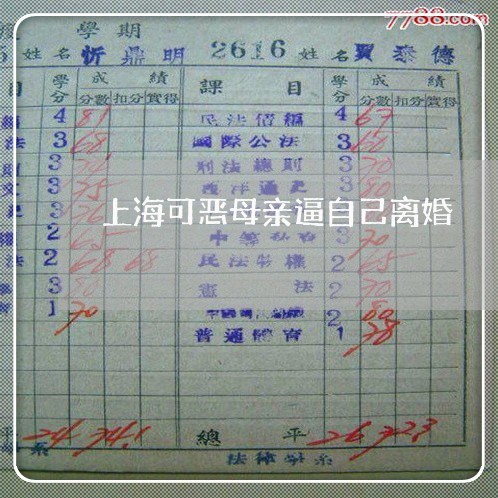 7788.com
學期
姓名 忻鼎明 2616 姓名 賈泰德
目 學分 成績 課目 學分 成績
分數 扣分 實得 分數 扣分 實得
4 81 民法債編 4 67
法 3 68 國際公法 3 60
3 刑法總則 3 70
3 75 西洋通史 3 80
上海可恶母亲逼自己离婚
2 65 3 70
法 2 68 68 民法物權 2 65
3 80 憲法 2 70
1 70 2 80
普通體育 1 78
平 24 74.1 總平 26 72.3
系 法律學系